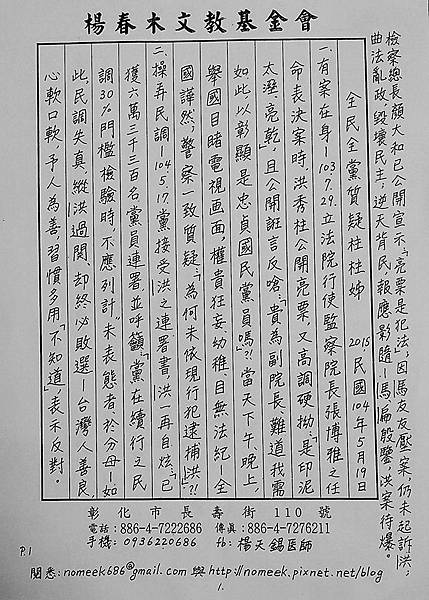 楊春木文教基金會
檢察總長顏大和已公開宣示「亮票是犯法」,因馬友友壓案,仍未起訴洪;
曲法亂政,毀壞民主,逆天背民,報應影隨—馬扁殷鑒,洪案待爆。
全民全黨質疑柱柱姊 2015 民國104年5月19日
一、有案在身—103.7.29.立法院行使監察院長張博雅之任
命表決案時洪秀柱公開亮票,又高調硬拗「是印泥
太溼,亮乾」,且公開誑言反嗆:「貴為副院長,難道我需
如此以彰顯是忠貞國民黨員嗎?!」當天下午、晚上,
舉國目睹電視画面,權貴狂妄、幼稚、目無法紀—全
國譁然,警察一致質疑:「為何未依現行犯逮捕洪?!」
二、操弄民調—104.5.17.黨接受洪之連署書,洪一再自炫:「已
獲六萬三千三百名黨員連署,並呼籲「黨在續行之民
調30%門檻檢驗時,不應列計"未表態者於分母—如
此,民調失真,縱洪過関,却終必敗選—台灣人善良,
心軟口軟,予人為善,習慣多用「不知道」表示反對。
彰化市長壽街110號
電話:886-4-7222686 傳真:886-4-7276211
手機:0936220686 fb:楊天錫医師
P.1
閱悉:nomeek686@gmail.com 與 http://nomeek.pixnet.net/blog
1.